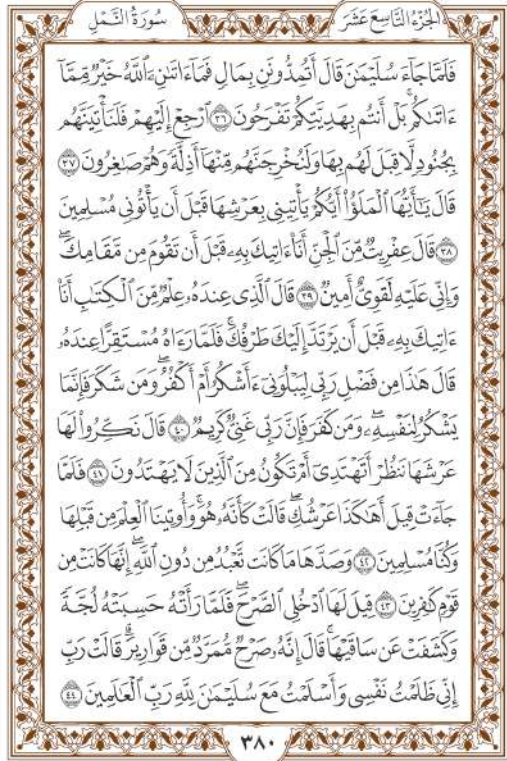 الجُزْءُ التَّاسِعَ عَشَرَ
سُورَةُ النَّمْلِ
فَلَمَّا جَآءَ سُلَيْمَٰنَ قَالَ أَتُمِدُّونَنِ بِمَالٖ فَمَآ ءَاتَىٰنِۦَ ٱللَّهُ خَيْرٞ مِّمَّآ
ءَاتَىٰكُمۚ بَلۡ أَنتُم بِهَدِيَّتِكُمۡ تَفۡرَحُونَ ٣٦ ٱرۡجِعۡ إِلَيۡهِمۡ فَلَنَأۡتِيَنَّهُم
بِجُنُودٖ لَّا قِبَلَ لَهُم بِهَا وَلَنُخۡرِجَنَّهُم مِّنۡهَآ أَذِلَّةٗ وَهُمۡ صَٰغِرُونَ ٣٧
قَالَ يَٰٓأَيُّهَا ٱلۡمَلَؤُاْ أَيُّكُمۡ يَأۡتِينِي بِعَرۡشِهَا قَبۡلَ أَن يَأۡتُونِي مُسۡلِمِينَ
٣٨ قَالَ عِفۡرِيتٞ مِّنَ ٱلۡجِنِّ أَنَا۠ ءَاتِيكَ بِهِۦ قَبۡلَ أَن تَقُومَ مِن مَّقَامِكَۖ
وَإِنِّي عَلَيۡهِ لَقَوِيٌّ أَمِينٞ ٣٩ قَالَ ٱلَّذِي عِندَهُۥ عِلۡمٞ مِّنَ ٱلۡكِتَٰبِ أَنَا۠
ءَاتِيكَ بِهِۦ قَبۡلَ أَن يَرۡتَدَّ إِلَيۡكَ طَرۡفُكَۚ فَلَمَّا رَءَاهُ مُسۡتَقِرًّا عِندَهُۥ
قَالَ هَٰذَا مِن فَضۡلِ رَبِّي لِيَبۡلُوَنِيٓ ءَأَشۡكُرُ أَمۡ أَكۡفُرُۖ وَمَن شَكَرَ فَإِنَّمَا
يَشۡكُرُ لِنَفۡسِهِۦۖ وَمَن كَفَرَ فَإِنَّ رَبِّي غَنِيّٞ كَرِيمٞ ٤٠ قَالَ نَكِّرُواْ لَهَا
عَرۡشَهَا نَنظُرۡ أَتَهۡتَدِيٓ أَمۡ تَكُونُ مِنَ ٱلَّذِينَ لَا يَهۡتَدُونَ ٤١ فَلَمَّا
جَآءَتۡ قِيلَ أَهَٰكَذَا عَرۡشُكِۖ قَالَتۡ كَأَنَّهُۥ هُوَۚ وَأُوتِينَا ٱلۡعِلۡمَ مِن قَبۡلِهَا
وَكُنَّا مُسۡلِمِينَ ٤٢ وَصَدَّهَا مَا كَانَت تَّعۡبُدُ مِن دُونِ ٱللَّهِۖ إِنَّهَا كَانَتۡ مِن
قَوۡمٖ كَٰفِرِينَ ٤٣ قِيلَ لَهَا ٱدۡخُلِي ٱلصَّرۡحَۖ فَلَمَّا رَأَتۡهُ حَسِبَتۡهُ لُجَّةٗ
وَكَشَفَتۡ عَن سَاقَيۡهَاۚ قَالَ إِنَّهُۥ صَرۡحٞ مُّمَرَّدٞ مِّن قَوَارِيرَۗ قَالَتۡ رَبِّ
إِنِّي ظَلَمۡتُ نَفۡسِي وَأَسۡلَمۡتُ مَعَ سُلَيۡمَٰنَ لِلَّهِ رَبِّ ٱلۡعَٰلَمِينَ ٤٤
٣٨٠